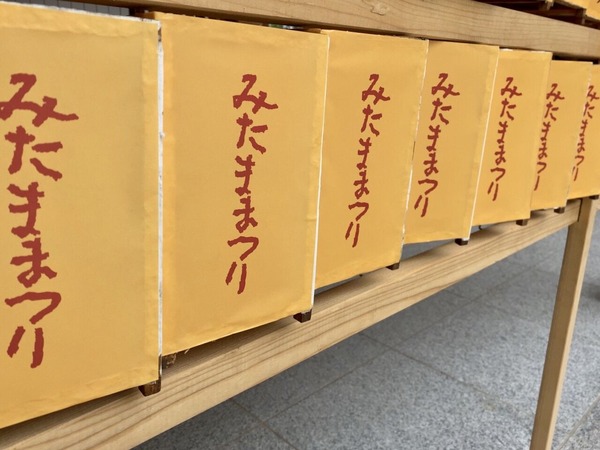 みたままつり
みたままつり
みたままつり
みたままつり
みたままつり
みたままつり
みたままつり